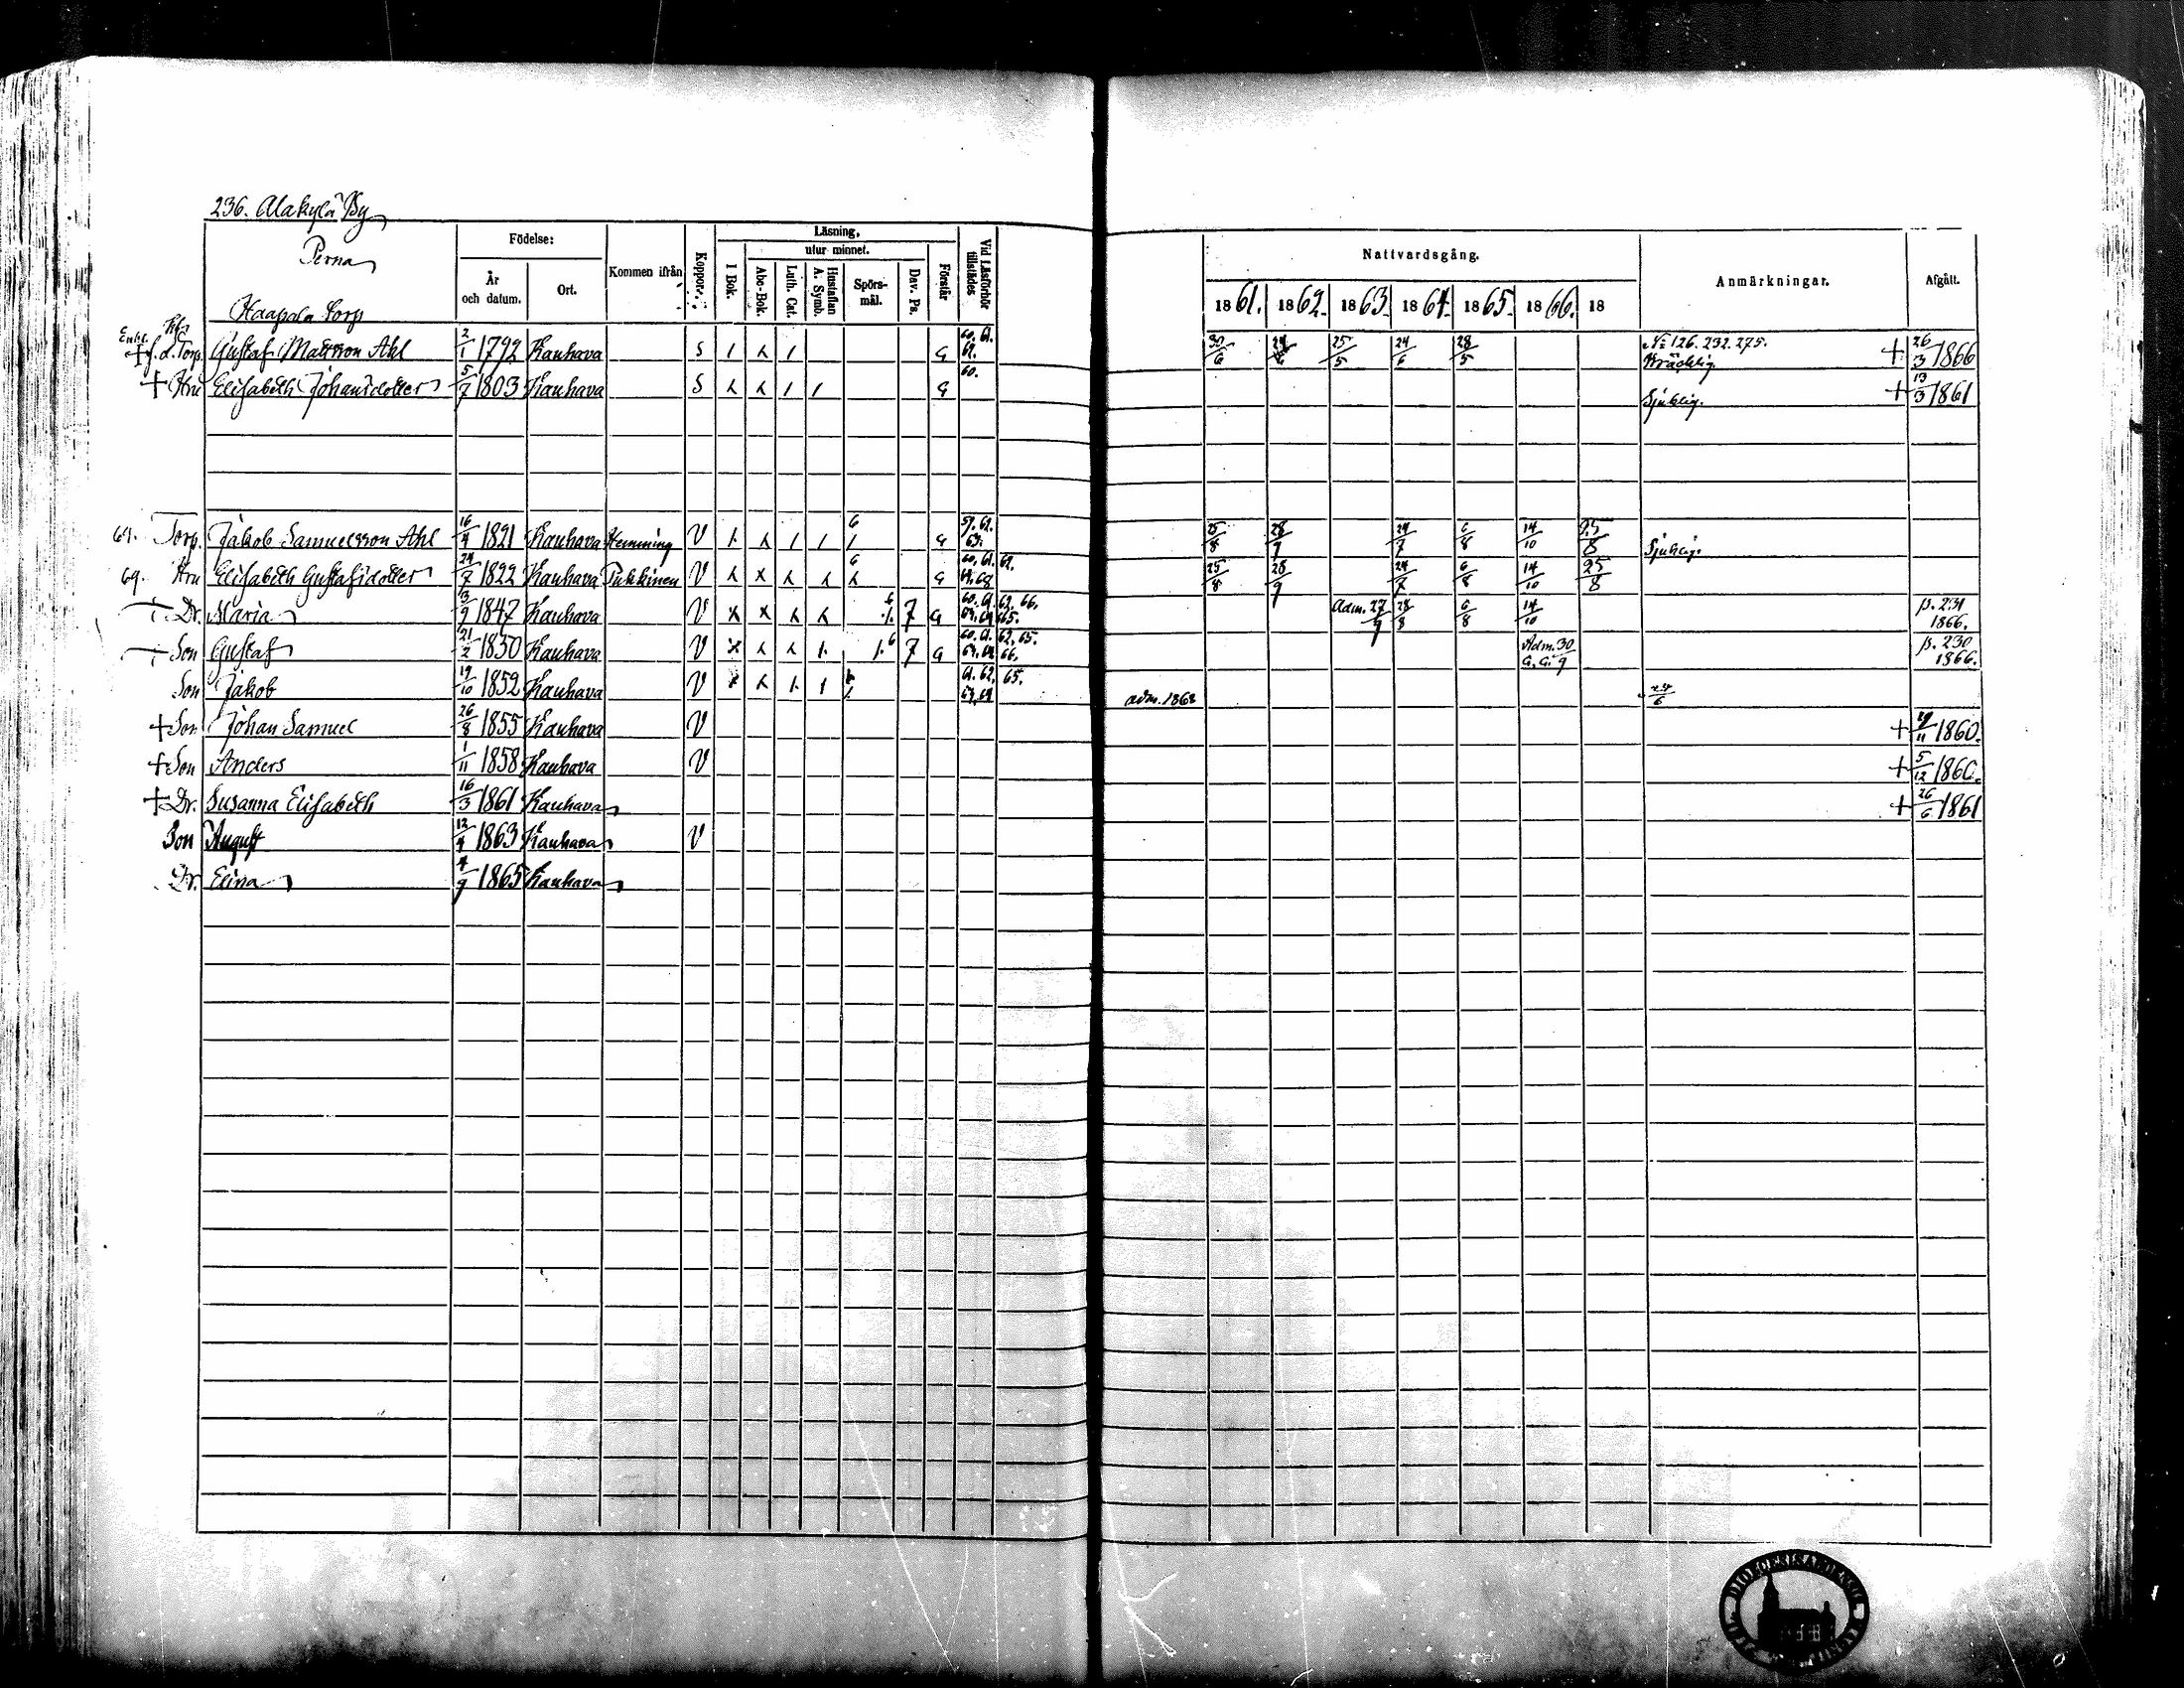 236. Alakylä By
Perna
Haapala torp
Födelse:
År och datum.
Ort.
Kommen ifrån
Koppor.
Läsning,
utur minnet.
I Bok.
Abc-Bok.
Luth. Cat.
Hustaflan A. Symb.
Spörs-mål.
Dav. Ps.
Förstår
Vid Läsförhör tillstädes
Nattvardsgång.
1861. 1862. 1863. 1864. 1865. 1866. 18
Anmärkningar.
Afgått.
Enkl.
+ f. d. Torp. Gustaf Mattsson Ahl 2/1 1792 Kauhava S G 60. 61. 62. 30/6 25/5 24/6 28/5 No 126. 232. 275. Bräcklig. + 26/3 1866
+ Hru Elisabeth Johansdotter 5/7 1803 Kauhava S G 60. Sjuklig. + 13/3 1861
Torp. Jakob Samuelsson Ahl 16/4 1821 Kauhava Hemming V 6 G 63. 25/8 28/9 24/7 6/8 14/10 25/8 Sjuklig.
69. Hru Elisabeth Gustafsdotter 24/7 1822 Kauhava Pukkinen V 6 G 60. 61. 62. 25/8 28/9 24/7 6/8 14/10 25/8
Dr. Maria 13/9 1847 Kauhava V 6 7 G 60. 61. 62. 66. 65. Adm. 27/9 28/8 6/8 14/10 p. 231 1866.
Son Gustaf 21/2 1850 Kauhava V 6 7 G 60. 61. 62. 65. 66. Adm. 30/9 p. 230 1866.
Son Jakob 19/10 1852 Kauhava V 61. 62. 65. adm. 1868
+ Son Johan Samuel 26/8 1855 Kauhava V + 29/11 1860.
+ Son Anders 1/11 1858 Kauhava V + 5/12 1860.
+ Dr. Susanna Elisabeth 16/3 1861 Kauhava + 26/6 1861
Son August 12/4 1863 Kauhava V
Dr. Elina 4/9 1865 Kauhava